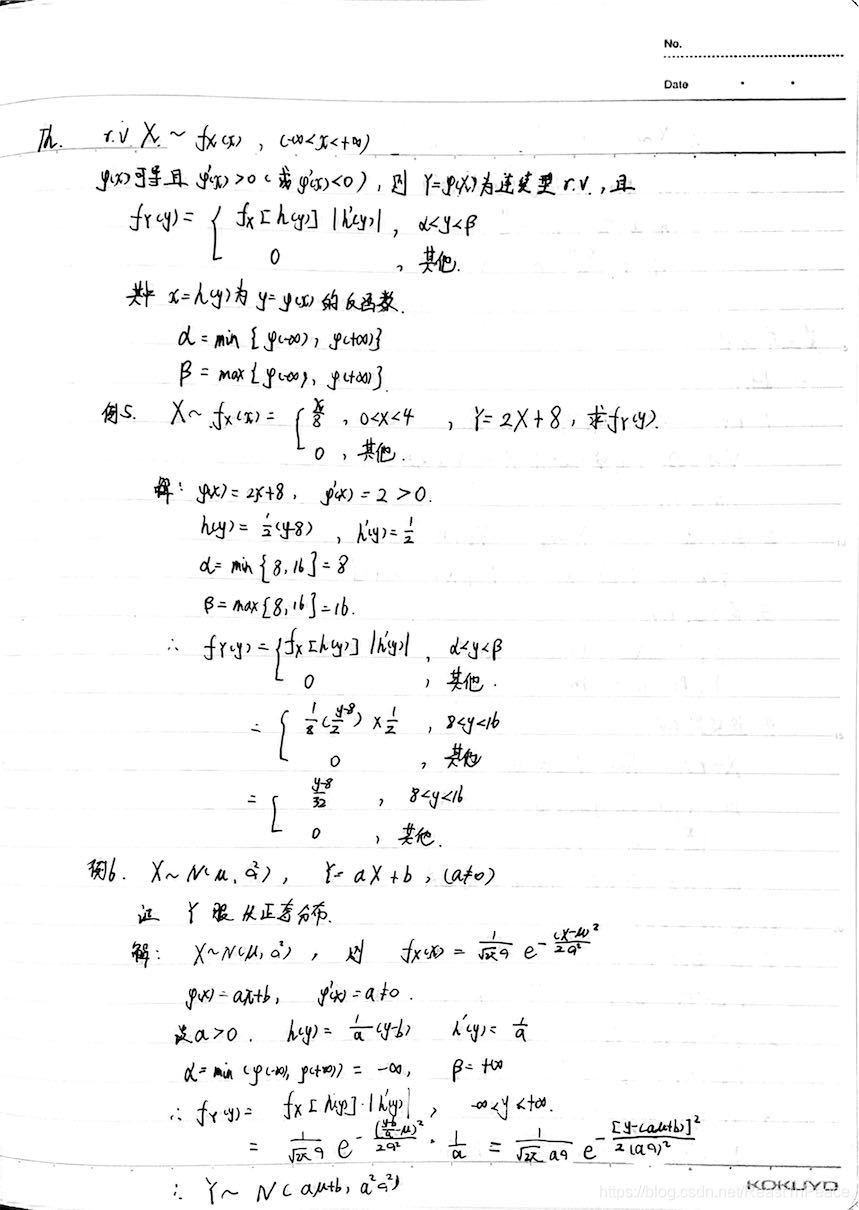 No.
Date
Th. r.v X ~ fX(x) , (-∞<x<+∞)
φ(x)可导且 φ'(x)>0(或φ'(x)<0), 则 Y=φ(X)为连续型 r.v., 且
fY(y) = { fX[h(y)] |h'(y)| , α<y<β
0 , 其他.
其中 x=h(y)为 y=φ(x) 的反函数.
α = min {φ(-∞), φ(+∞)}
β = max{φ(-∞), φ(+∞)}
例5. X~ fX(x) = { x/8 , 0<x<4 , Y=2X+8, 求fY(y).
0 , 其他.
解: φ(x)=2x+8, φ'(x)=2>0.
h(y)= 1/2(y-8) , h'(y)=1/2
α= min{8,16}=8
β=max{8,16}=16.
∴ fY(y)={ fX[h(y)] |h'(y)| , α<y<β
0 , 其他.
= { 1/8(y-8/2)×1/2 , 8<y<16
0 , 其他
= { y-8/32 , 8<y<16
0 , 其他.
例6. X~N(μ, σ²), Y=aX+b, (a≠0)
证 Y 服从正态分布.
解: X~N(μ,σ²), 则 fX(x) = 1/√2π σ e^-(x-μ)²/2σ²
φ(x)=ax+b, φ'(x)=a≠0.
设a>0. h(y)= 1/a(y-b) h'(y)= 1/a
α=min(φ(-∞),φ(+∞)) = -∞, β=+∞
∴ fY(y)= fX[h(y)]·|h'(y)| , -∞<y<+∞.
= 1/√2π σ e^-(y-b/a-μ)²/2σ² · 1/a = 1/√2π aσ e^-[y-(aμ+b)]²/2(aσ)²
∴ Y~ N(aμ+b, a²σ²)
KOKUYO